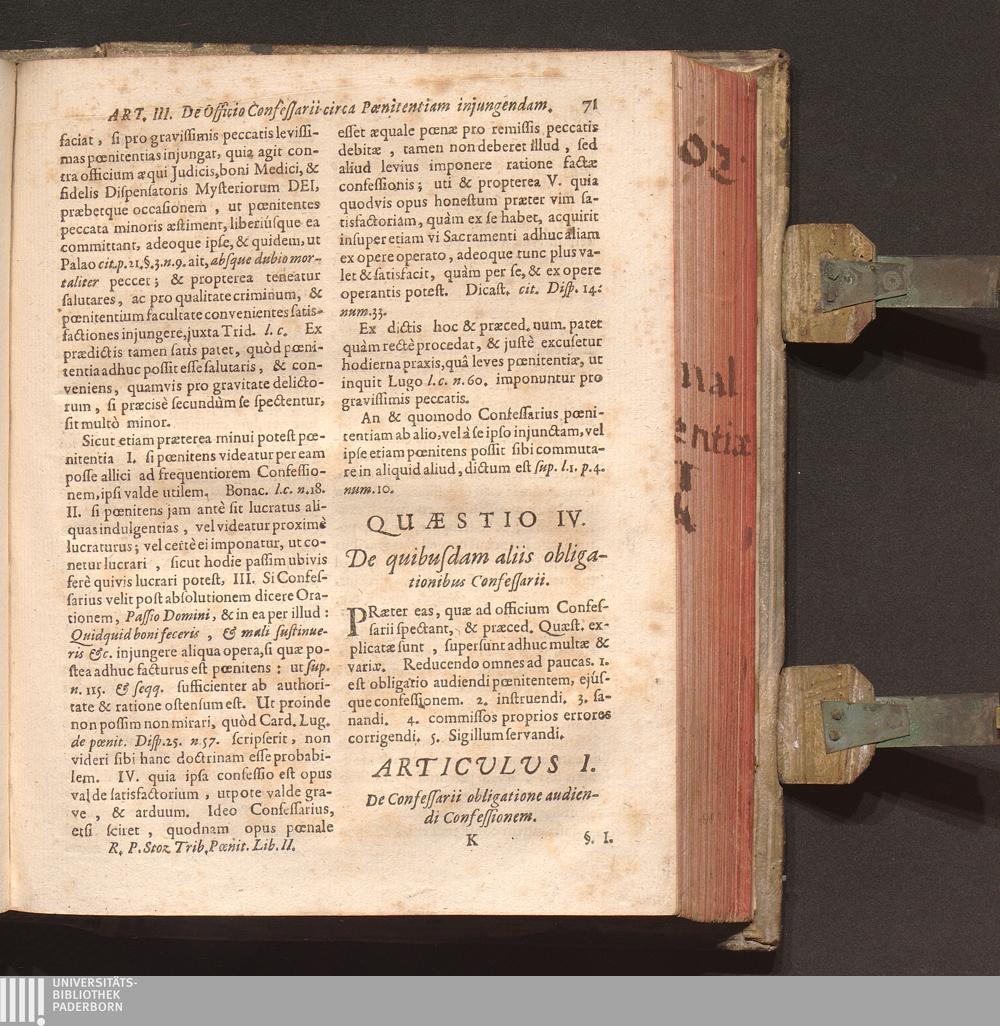 ART. III. De Officio Confeſſarii circa Pœnitentiam injungendam. 71
faciat, ſi pro graviſſimis peccatis leviſſi-
mas pœnitentias injungat, quia agit con-
tra officium æqui Judicis, boni Medici, &
fidelis Diſpenſatoris Myſteriorum DEI,
præbetque occaſionem, ut pœnitentes
peccata minoris æſtiment, liberiúſque ea
committant, adeoque ipſe, & quidem, ut
Palao cit. p. 21. §. 3. n. 9. ait, abſque dubio mor-
taliter peccet; & propterea teneatur
ſalutares, ac pro qualitate criminum, &
pœnitentium facultate convenientes ſatis-
factiones injungere, juxta Trid. l. c. Ex
prædictis tamen ſatis patet, quòd pœni-
tentia adhuc poſſit eſſe ſalutaris, & con-
veniens, quamvis pro gravitate delicto-
rum, ſi præcisè ſecundùm ſe ſpectentur,
ſit multò minor.
Sicut etiam præterea minui poteſt pœ-
nitentia I. ſi pœnitens videatur per eam
poſſe allici ad frequentiorem Confeſſio-
nem, ipſi valde utilem. Bonac. l. c. n. 18.
II. ſi pœnitens jam antè ſit lucratus ali-
quas indulgentias, vel videatur proximè
lucraturus; vel certè ei imponatur, ut co-
netur lucrari, ſicut hodie paſſim ubivis
ferè quivis lucrari poteſt, III. Si Confeſ-
ſarius velit poſt abſolutionem dicere Ora-
tionem, Paſſio Domini, & in ea per illud:
Quidquid boni feceris, & mali ſuſtinue-
ris &c. injungere aliqua opera, ſi quæ po-
ſtea adhuc facturus eſt pœnitens: ut ſup.
n. 115. & ſeqq. ſufficienter ab authori-
tate & ratione oſtenſum eſt. Ut proinde
non poſſim non mirari, quòd Card. Lug.
de pœnit. Diſp. 25. n. 57. ſcripſerit, non
videri ſibi hanc doctrinam eſſe probabi-
lem. IV. quia ipſa confeſſio eſt opus
valde ſatisfactorium, utpote valde gra-
ve, & arduum. Ideo Confeſſarius,
etſi ſciret, quodnam opus pœnale
R. P. Stoz Trib. Pœnit. Lib. II.
eſſet æquale pœnæ pro remiſſis peccatis
debitæ, tamen non deberet illud, ſed
aliud levius imponere ratione factæ
confeſſionis; uti & propterea V. quia
quodvis opus honeſtum præter vim ſa-
tisfactoriam, quàm ex ſe habet, acquirit
inſuper etiam vi Sacramenti adhuc aliam
ex opere operato, adeoque tunc plus va-
let & ſatisfacit, quàm per ſe, & ex opere
operantis poteſt. Dicaſt. cit. Diſp. 14.
num. 33.
Ex dictis hoc & præced. num. patet
quàm rectè procedat, & juſtè excuſetur
hodierna praxis, quâ leves pœnitentiæ, ut
inquit Lugo l. c. n. 60. imponuntur pro
graviſſimis peccatis.
An & quomodo Confeſſarius pœni-
tentiam ab alio, vel à ſe ipſo injunctam, vel
ipſe etiam pœnitens poſſit ſibi commuta-
re in aliquid aliud, dictum eſt ſup. l. 1. p. 4.
num. 10.
QUÆSTIO IV.
De quibuſdam aliis obliga-
tionibus Confeſſarii.
PRæter eas, quæ ad officium Confeſ-
ſarii ſpectant, & præced. Quæſt. ex-
plicatæ ſunt, ſuperſunt adhuc multæ &
variæ. Reducendo omnes ad paucas. 1.
eſt obligatio audiendi pœnitentem, ejúſ-
que confeſſionem. 2. inſtruendi. 3. ſa-
nandi. 4. commiſſos proprios errores
corrigendi. 5. Sigillum ſervandi.
ARTICULUS I.
De Confeſſarii obligatione audien-
di Confeſſionem.
K §. I.
oz.
nal
entiæ
UNIVERSITÄTS-
BIBLIOTHEK
PADERBORN